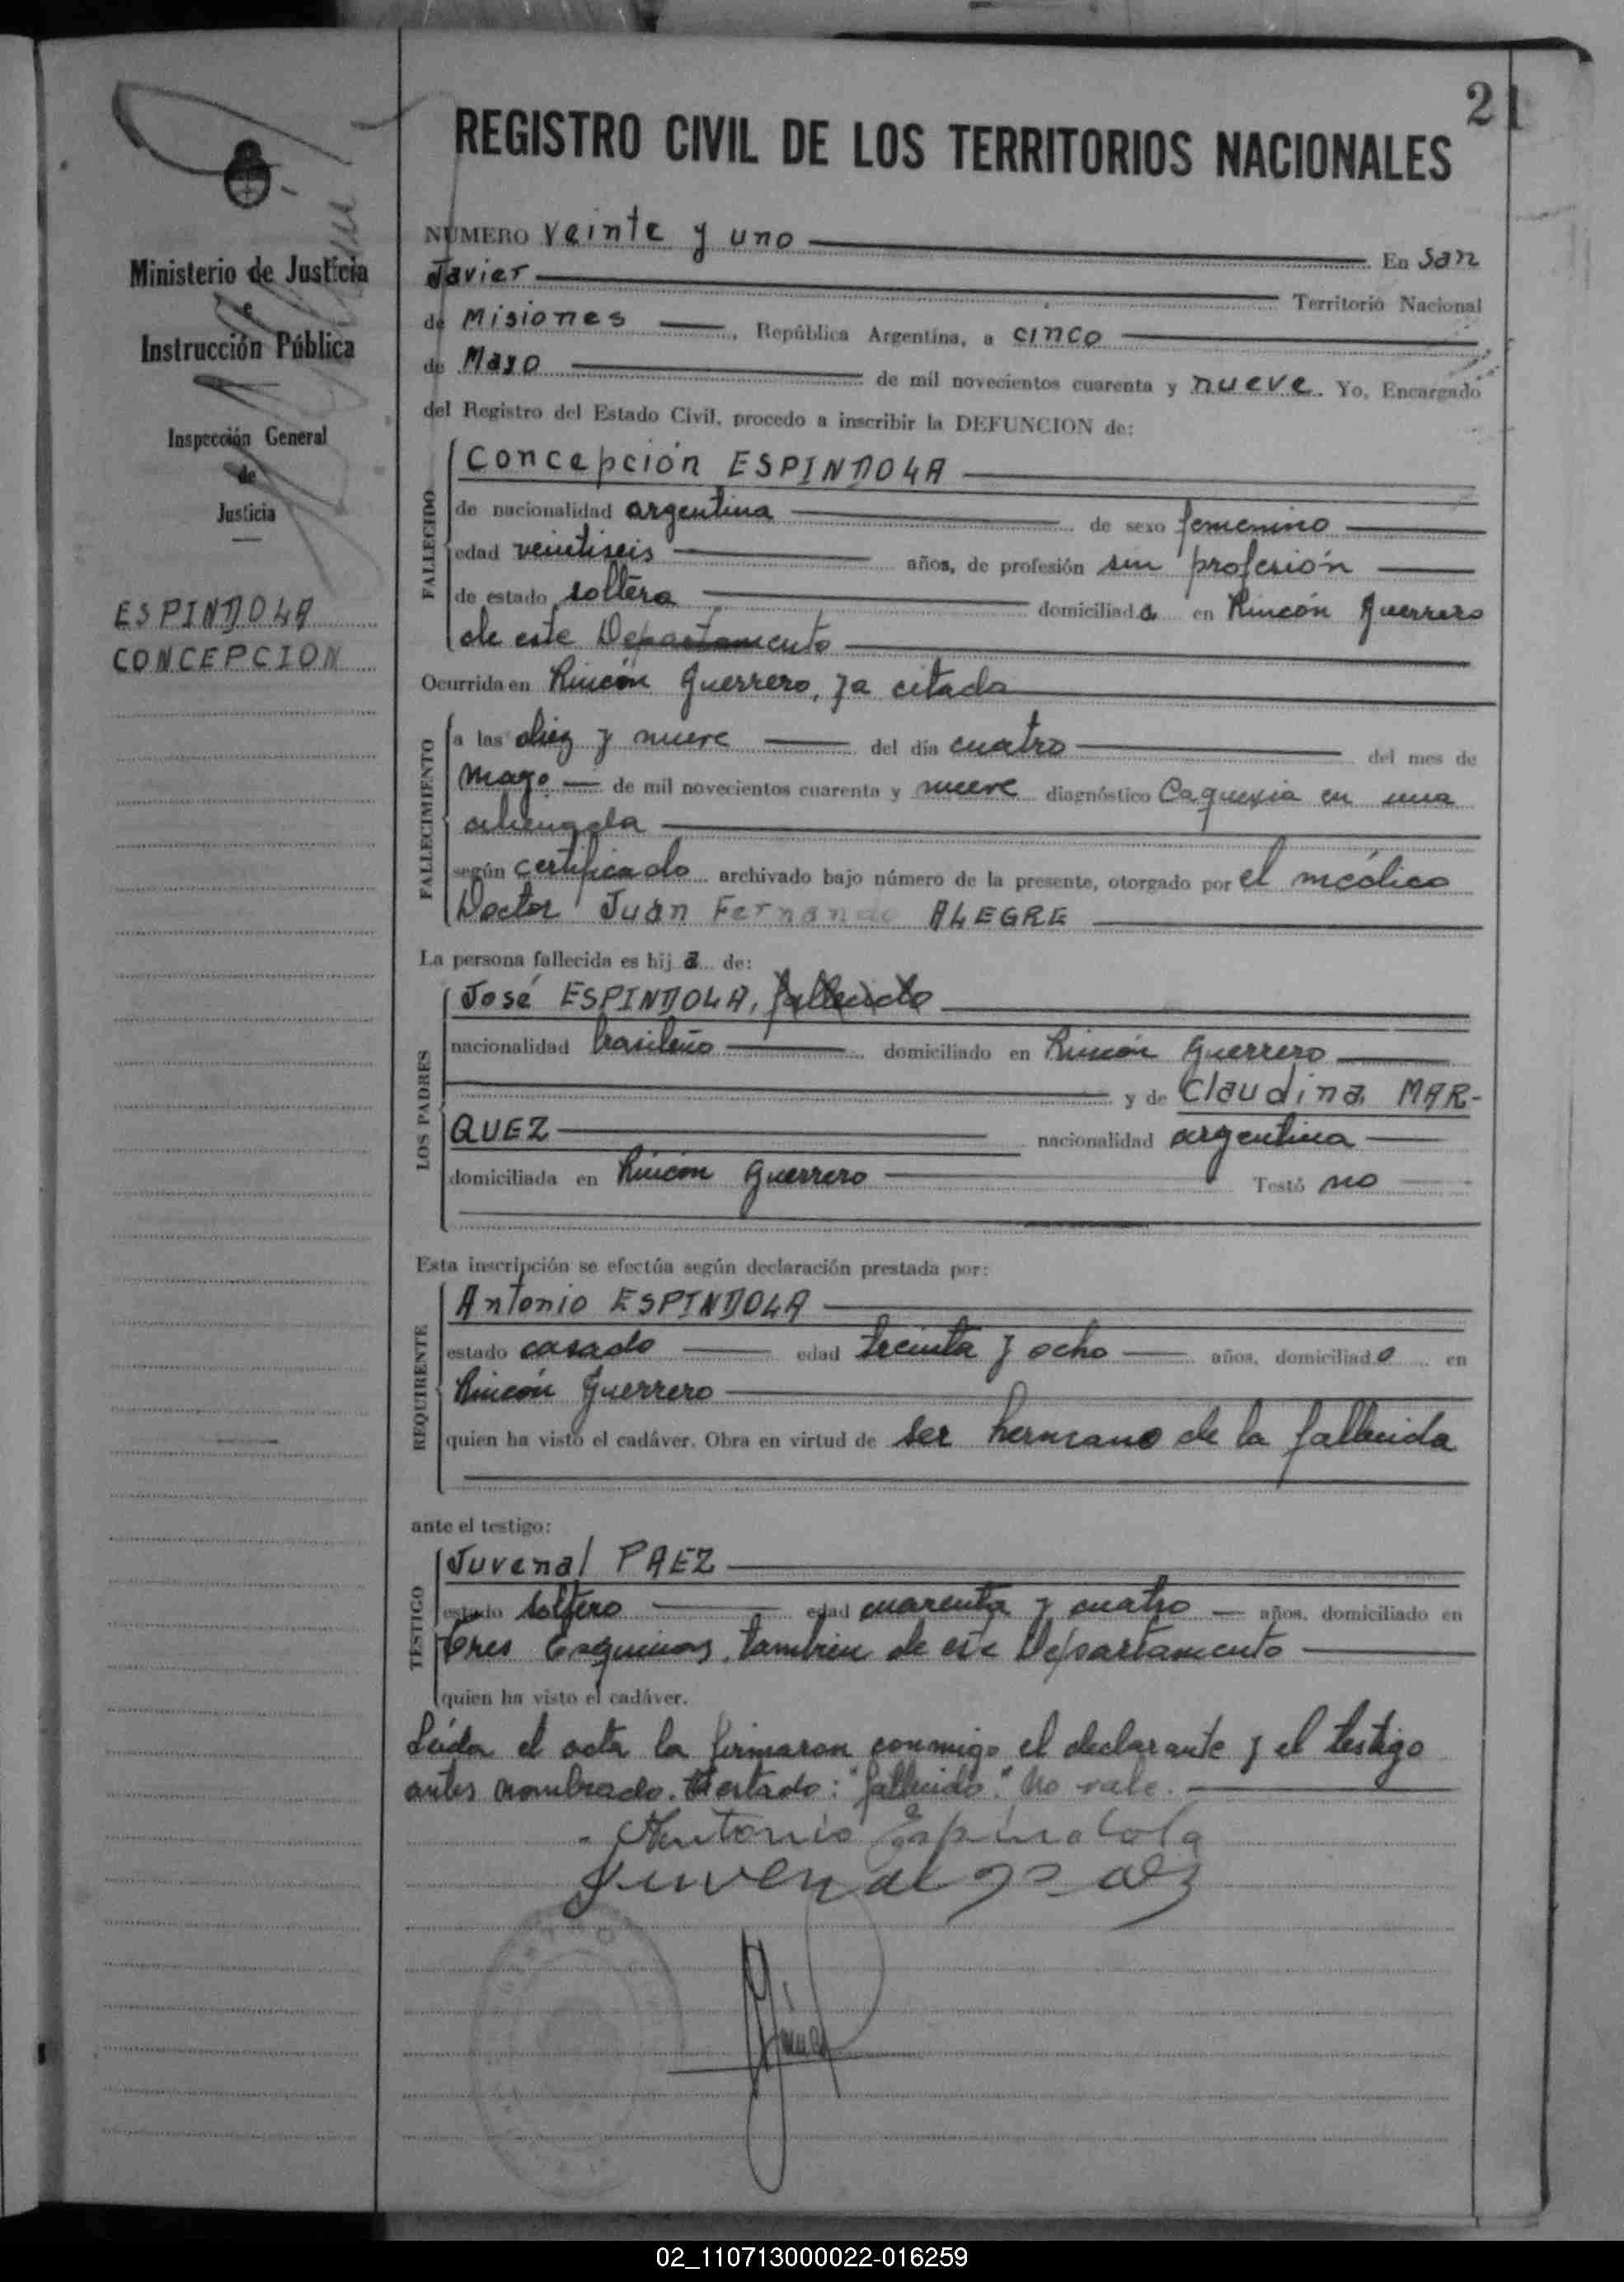 21
REGISTRO CIVIL DE LOS TERRITORIOS NACIONALES
Ministerio de Justicia
e
Instrucción Pública
Inspección General
de
Justicia
ESPINDOLA
CONCEPCION
NUMERO veinte y uno En San
Javier Territorio Nacional
de Misiones, República Argentina, a cinco
de Mayo de mil novecientos cuarenta y nueve. Yo, Encargado
del Registro del Estado Civil, procedo a inscribir la DEFUNCION de:
FALLECIDO
Concepción ESPINDOLA
de nacionalidad argentina de sexo femenino
edad veintiseis años, de profesión sin profesión
de estado soltera domiciliada en Rincón Guerrero
de este Departamento
Ocurrida en Rincón Guerrero, ya citada
FALLECIMIENTO
a las diez y nueve del día cuatro del mes de
Mayo de mil novecientos cuarenta y nueve diagnóstico Caquexia en una
alienada
según certificado archivado bajo número de la presente, otorgado por el médico
Doctor Juan Fernando ALEGRE
La persona fallecida es hija de:
LOS PADRES
José ESPINDOLA, fallecido
nacionalidad brasileño domiciliado en Rincón Guerrero
y de Claudina MAR-
QUEZ nacionalidad argentina
domiciliada en Rincón Guerrero Testó no
Esta inscripción se efectúa según declaración prestada por:
REQUIRENTE
Antonio ESPINDOLA
estado casado edad treinta y ocho años, domiciliado en
Rincón Guerrero
quien ha visto el cadáver. Obra en virtud de ser hermano de la fallecida
ante el testigo:
TESTIGO
Juvenal PAEZ
estado soltero edad cuarenta y cuatro años, domiciliado en
Tres Esquinas, tambien de este Departamento
quien ha visto el cadáver.
Leída el acta la firmaron conmigo el declarante y el testigo
antes nombrado. Testado: "fallecido". No vale.
Antonio Espindola
Juvenal Paez
02_110713000022-016259